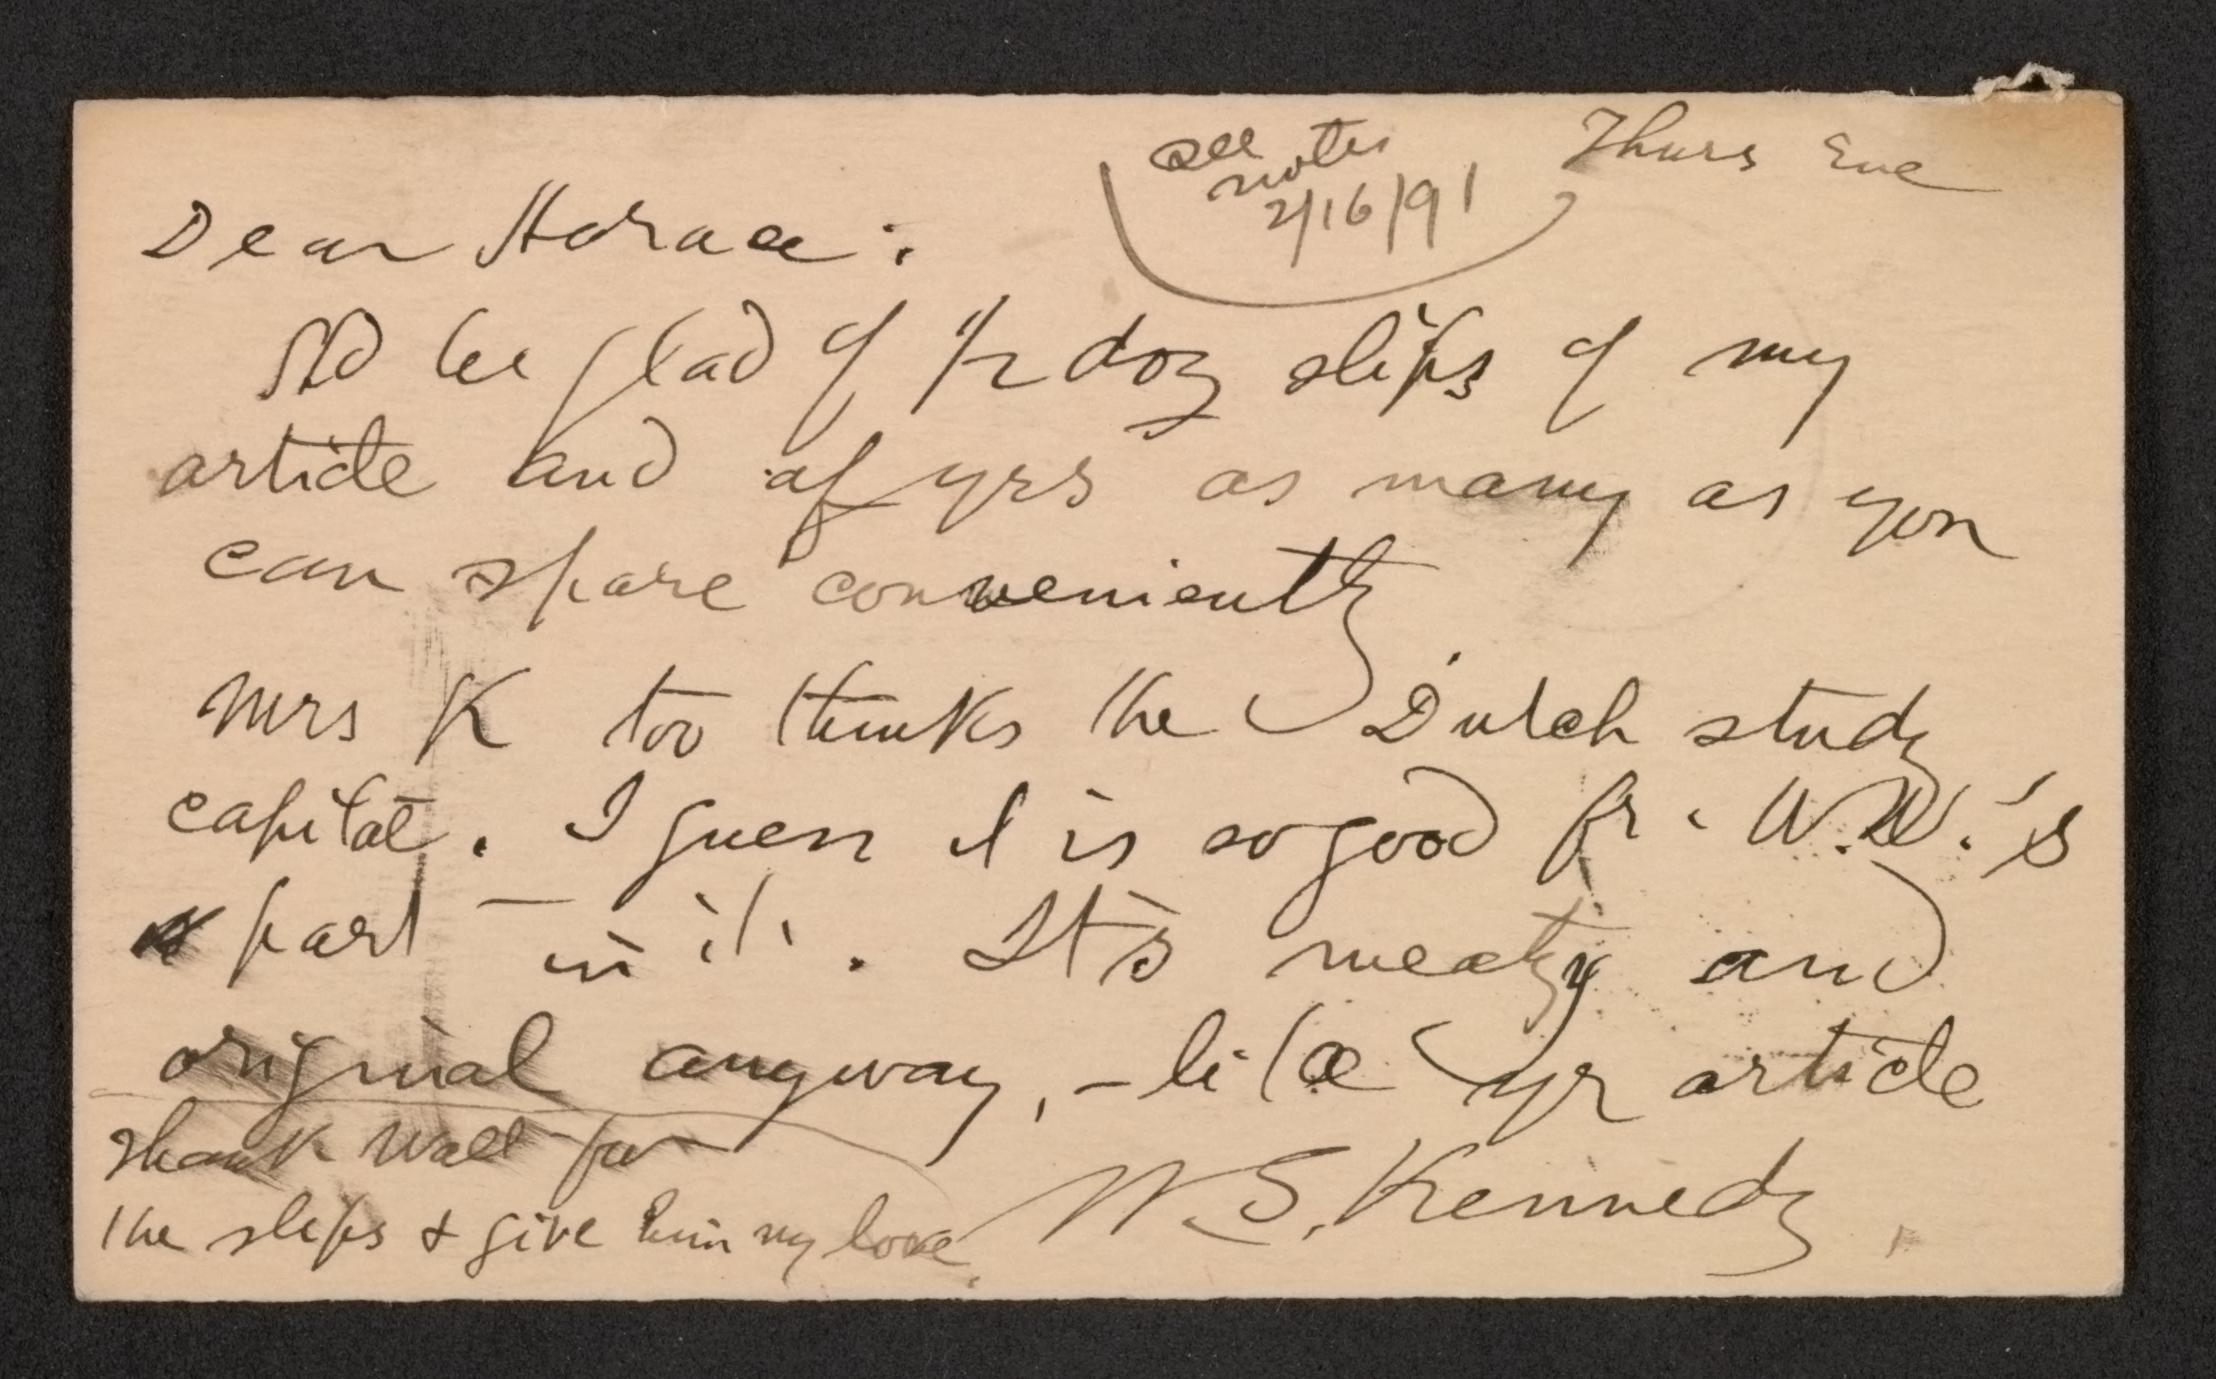 see
notes
2/16/91
Thurs Eve
Dear Horace:
Shd be glad of 1/2 doz slips of my
article and of yrs as many as you
can spare conveniently
Mrs K too thinks the Dutch study
capital. I guess it is so good fr. W.W.'s
part in it. It's meaty and
original anyway, - like yr article
W. S. Kennedy.
Thank Walt for
the slips & give him my love.